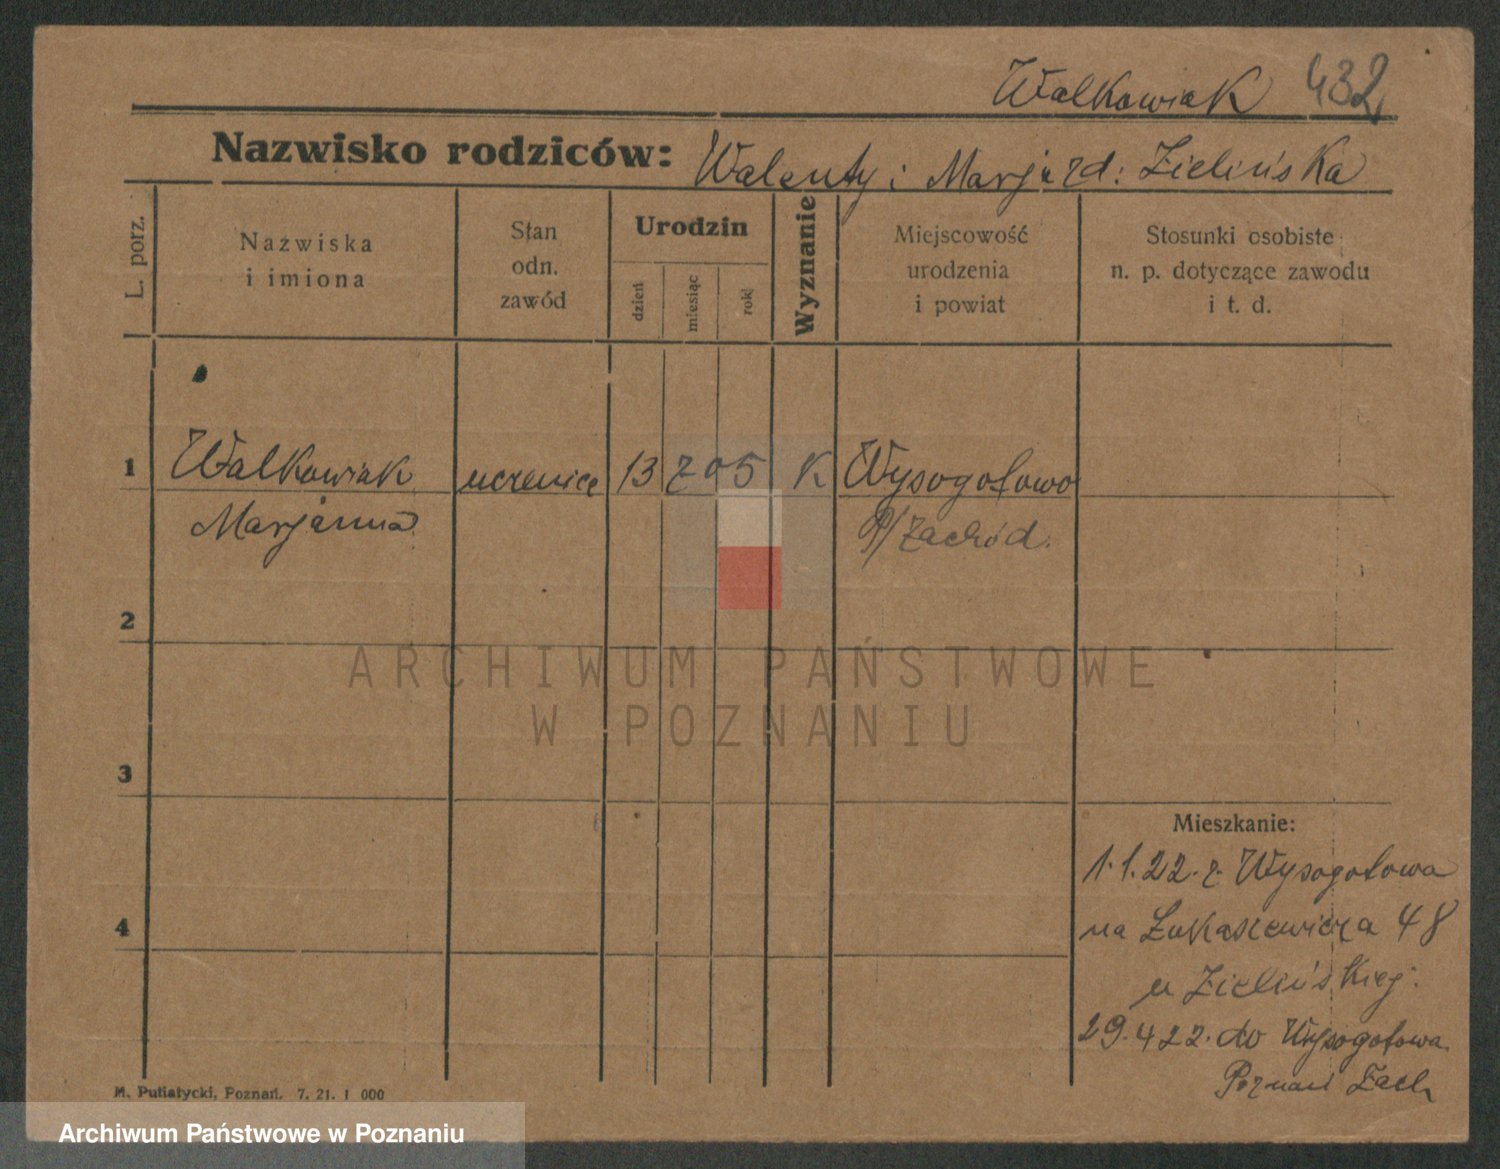 Walkowiak 432
Nazwisko rodziców: Walenty i Marja zd: Zielińska
L. porz.
Nazwiska
i imiona
Stan
odn.
zawód
Urodzin
dzień
miesiąc
rok
Wyznanie
Miejscowość
urodzenia
i powiat
Stosunki osobiste
n. p. dotyczące zawodu
i t. d.
1 Walkowiak uczenica 13 2 05 K Wysogotowo
Marjanna P/Zachód.
2
3
4
Mieszkanie:
1.1.22. z Wysogotowa
na Łukaszewicza 48
u Zielińskiej.
29.4.22. do Wysogotowa
Poznań Zach
M. Putiatycki, Poznań. 7. 21. 1 000
ARCHIWUM PAŃSTWOWE
W POZNANIU
Archiwum Państwowe w Poznaniu